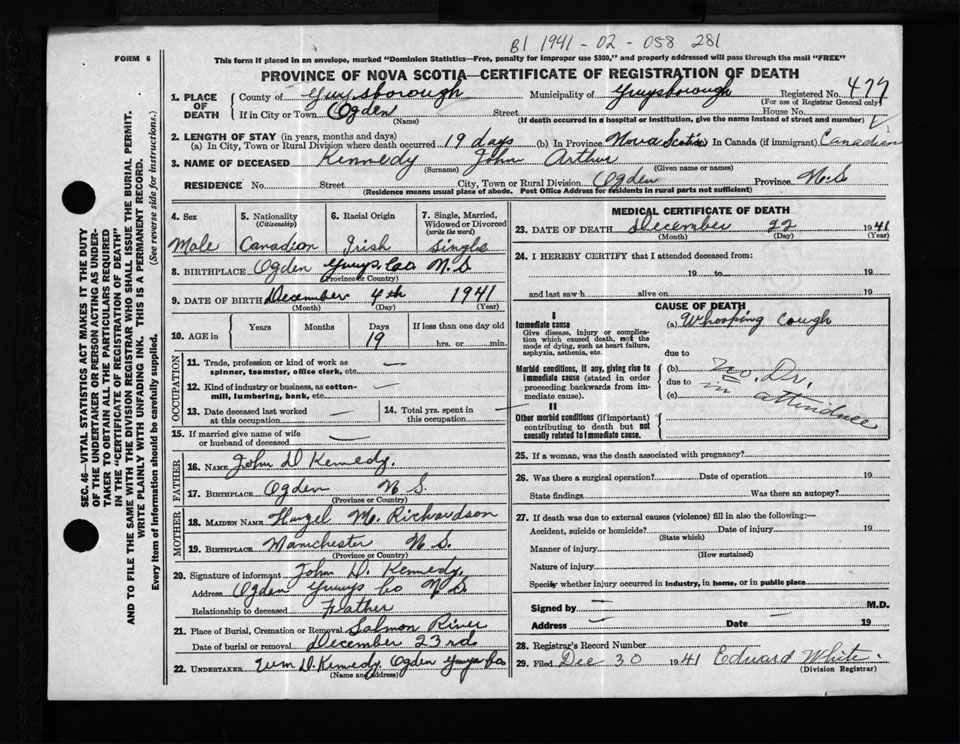 B1 1941 - 02 - 058 281
FORM 6
This form if placed in an envelope, marked "Dominion Statistics—Free, penalty for improper use $300," and properly addressed will pass through the mail "FREE"
PROVINCE OF NOVA SCOTIA—CERTIFICATE OF REGISTRATION OF DEATH
1. PLACE OF DEATH County of Guysborough Municipality of Guysborough Registered No. 477
(For use of Registrar General only)
If in City or Town Ogden Street House No.
(Name) (If death occurred in a hospital or institution, give the name instead of street and number)
2. LENGTH OF STAY (in years, months and days)
(a) In City, Town or Rural Division where death occurred 19 days (b) In Province Nova Scotia In Canada (if immigrant) Canadian
3. NAME OF DECEASED Kennedy John Arthur
(Surname) (Given name or names)
RESIDENCE No. Street City, Town or Rural Division Ogden Province N.S
(Residence means usual place of abode. Post Office Address for residents in rural parts not sufficient)
4. Sex 5. Nationality (Citizenship) 6. Racial Origin 7. Single, Married, Widowed or Divorced (write the word)
Male Canadian Irish Single
8. BIRTHPLACE Ogden Guys Co N.S
(Province or Country)
9. DATE OF BIRTH December 4th 1941
(Month) (Day) (Year)
10. AGE in Years Months Days If less than one day old
19 hrs. or min.
OCCUPATION
11. Trade, profession or kind of work as spinner, teamster, office clerk, etc. —
12. Kind of industry or business, as cotton-mill, lumbering, bank, etc. —
13. Date deceased last worked at this occupation — 14. Total yrs. spent in this occupation —
15. If married give name of wife or husband of deceased —
FATHER
16. NAME John D Kennedy.
17. BIRTHPLACE Ogden N S
(Province or Country)
MOTHER
18. MAIDEN NAME Hazel M. Richardson
19. BIRTHPLACE Manchester N S.
(Province or Country)
20. Signature of informant John D. Kennedy.
Address Ogden Guys Co N.S.
Relationship to deceased Father
21. Place of Burial, Cremation or Removal Salmon River
Date of burial or removal December 23rd
22. UNDERTAKER D. Kennedy. Ogden Guys Co
(Name and address)
MEDICAL CERTIFICATE OF DEATH
23. DATE OF DEATH December 22 1941
(Month) (Day) (Year)
24. I HEREBY CERTIFY that I attended deceased from:
19 to 19
and last saw h alive on 19
CAUSE OF DEATH
I
Immediate cause
Give disease, injury or complication which caused death, not the mode of dying, such as heart failure, asphyxia, asthenia, etc.
(a) Whooping Cough
due to
Morbid conditions, if any, giving rise to immediate cause (stated in order proceeding backwards from immediate cause).
(b)
due to
(c)
No. Dr. in attendance
II
Other morbid conditions (if important) contributing to death but not causally related to immediate cause.
25. If a woman, was the death associated with pregnancy?
26. Was there a surgical operation? Date of operation 19
State findings Was there an autopsy?
27. If death was due to external causes (violence) fill in also the following:—
Accident, suicide or homicide? Date of injury 19
(State which)
Manner of injury
(How sustained)
Nature of injury
Specify whether injury occurred in industry, in home, or in public place
Signed by — M.D.
Address — Date — 19
28. Registrar's Record Number
29. Filed Dec 30 1941 Edward White.
(Division Registrar)
SEC. 46—VITAL STATISTICS ACT MAKES IT THE DUTY
OF THE UNDERTAKER OR PERSON ACTING AS UNDER-
TAKER TO OBTAIN ALL THE PARTICULARS REQUIRED
IN THE "CERTIFICATE OF REGISTRATION OF DEATH"
AND TO FILE THE SAME WITH THE DIVISION REGISTRAR WHO SHALL ISSUE THE BURIAL PERMIT.
WRITE PLAINLY WITH UNFADING INK. THIS IS A PERMANENT RECORD.
Every item of information should be carefully supplied. (See reverse side for instructions.)